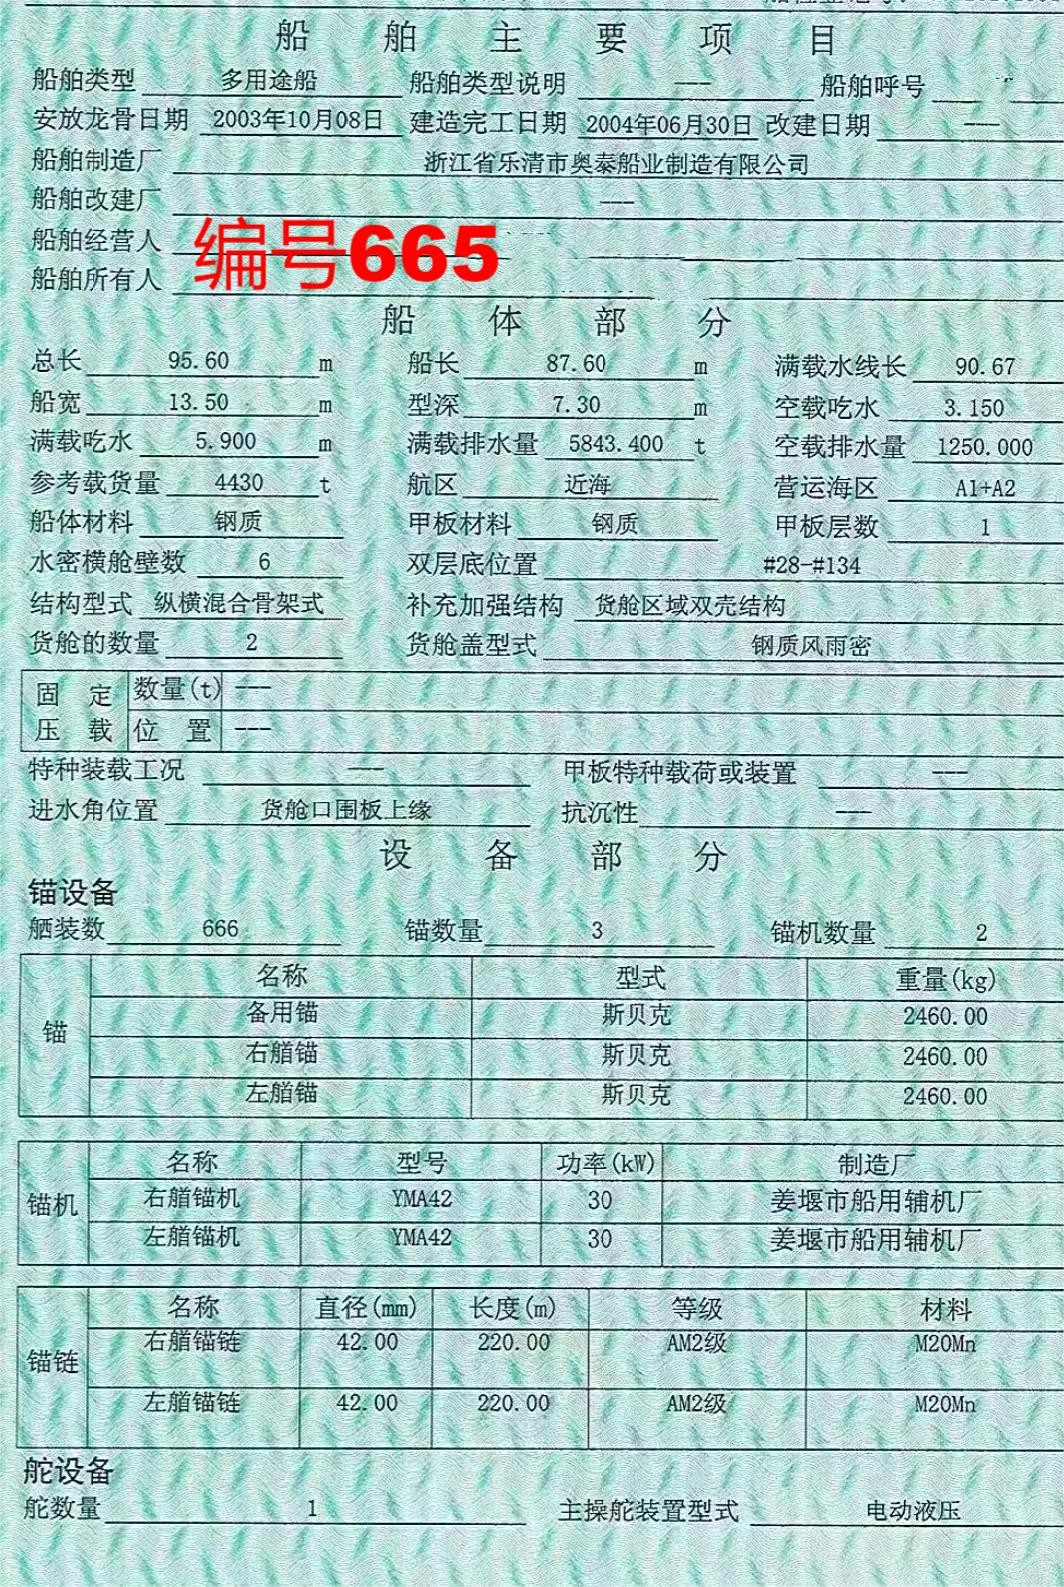 船舶主要项目
船舶类型 多用途船 船舶类型说明 --- 船舶呼号
安放龙骨日期 2003年10月08日 建造完工日期 2004年06月30日 改建日期 ---
船舶制造厂 浙江省乐清市奥泰船业制造有限公司
船舶改建厂 ---
船舶经营人
编号665
船舶所有人
船体部分
总长 95.60 m 船长 87.60 m 满载水线长 90.67
船宽 13.50 m 型深 7.30 m 空载吃水 3.150
满载吃水 5.900 m 满载排水量 5843.400 t 空载排水量 1250.000
参考载货量 4430 t 航区 近海 营运海区 A1+A2
船体材料 钢质 甲板材料 钢质 甲板层数 1
水密横舱壁数 6 双层底位置 #28-#134
结构型式 纵横混合骨架式 补充加强结构 货舱区域双壳结构
货舱的数量 2 货舱盖型式 钢质风雨密
固定 数量(t) ---
压载 位置 ---
特种装载工况 --- 甲板特种载荷或装置 ---
进水角位置 货舱口围板上缘 抗沉性 ---
设备部分
锚设备
舾装数 666 锚数量 3 锚机数量 2
名称 型式 重量(kg)
备用锚 斯贝克 2460.00
锚
右艏锚 斯贝克 2460.00
左艏锚 斯贝克 2460.00
名称 型号 功率(kW) 制造厂
锚机 右艏锚机 YMA42 30 姜堰市船用辅机厂
左艏锚机 YMA42 30 姜堰市船用辅机厂
名称 直径(mm) 长度(m) 等级 材料
右艏锚链 42.00 220.00 AM2级 M20Mn
锚链
左艏锚链 42.00 220.00 AM2级 M20Mn
舵设备
舵数量 1 主操舵装置型式 电动液压